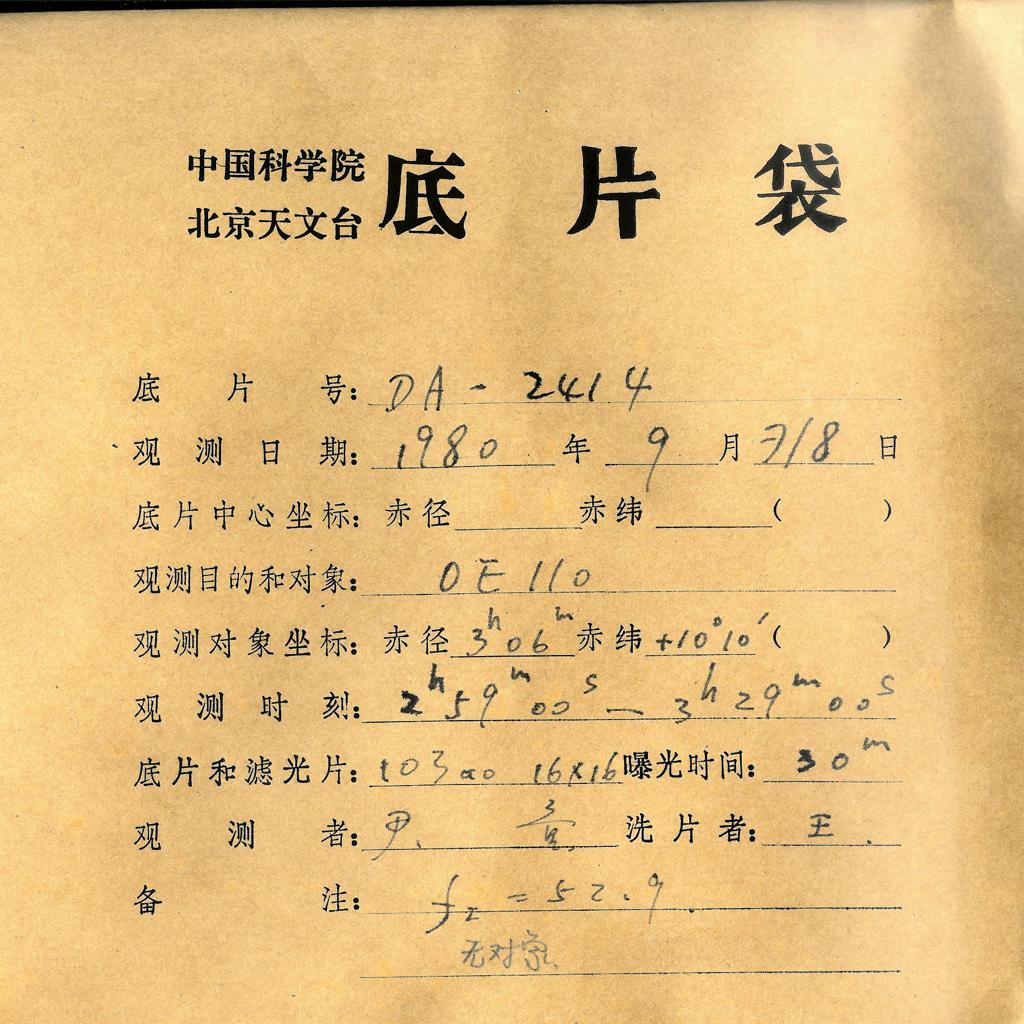 中国科学院
北京天文台 底片袋
底片号：DA-2414
观测日期：1980年9月7/8日
底片中心坐标：赤径 赤纬 （ ）
观测目的和对象：OE110
观测对象坐标：赤径3h06m赤纬+10°10′（ ）
观测时刻：2h59m00s—3h29m00s
底片和滤光片：103ao 16×16 曝光时间：30m
观测者：尹. 洗片者：王.
备注：fz=52.9
无对象